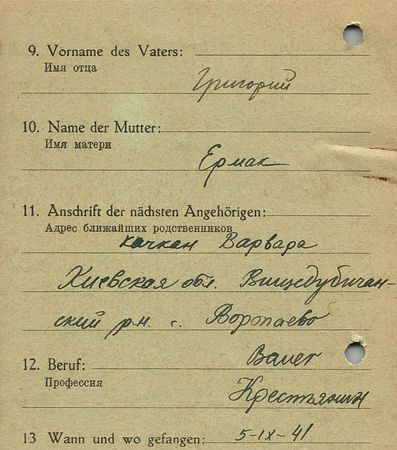 9. Vorname des Vaters:
Имя отца
Григорий
10. Name der Mutter:
Имя матери
Ермак
11. Anschrift der nächsten Angehörigen:
Адрес ближайших родственников
Качкан Варвара
Киевская обл. Вищедубичан-
ский р-н. с. Воропаево
12. Beruf:
Профессия
Крестьянин
13 Wann und wo gefangen: 5-IX-41